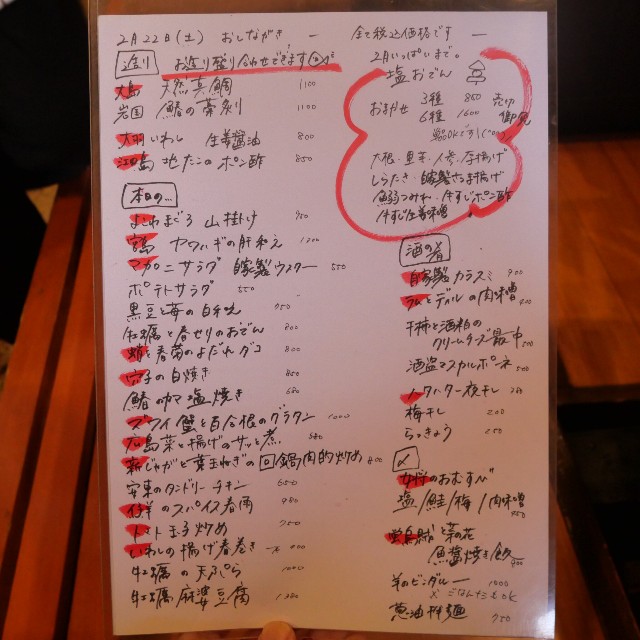 2月22日(土) おしながき ー 全て税込価格です ー
造り お造り盛り合わせできます
大島 燃真鯛 1100
岩国 鰆の藁刺 1100
大羽いわし 生姜醤油 800
江田島 地たこのポン酢 850
本日の…
よこわまぐろ 山掛け 950
宮島 カワハギの肝和え 1200
マカロニサラダ 自家製ウスター 550
ポテトサラダ 550
黒豆と苺の白和え 750
牡蠣と春せりのおでん 800
蛸と春菊のよだれダコ 800
穴子の白焼き 850
鰆カマ塩焼き 680
ズワイ蟹と百合根のグラタン 1000
広島菜と揚げのサッと煮 580
新じゃがと葉玉ねぎの回鍋肉的炒め 800
安東のタンドリーチキン 650
仔羊のスパイス春雨 980
トマト玉子炒め 750
いわしの揚げ春巻き 一本 400
牡蠣の天ぷら 1000
牡蠣麻婆豆腐 1380
2月いっぱいまで。
塩おでん
おまかせ 3種 850 売切
6種 1600 御免
単品OKです!
大根・里芋・人参・厚揚げ
しらたき・自家製さつま揚げ
魚河つみれ・牛すじポン酢
牛すじ生姜味噌
酒の肴
自家製カラスミ 900
ラムとディルの肉味噌 400
干柿と酒粕の
クリームチーズ最中 500
酒盗マスカルポーネ 500
ノドグロ一夜干し 780
梅干し 200
らっきょう 250
〆
女将のおむすび
塩/鮭/梅/肉味噌 350
蛍烏賊と菜の花
魚醤焼き飯 900
羊のビンダルー 1000
葱油拌麺 750